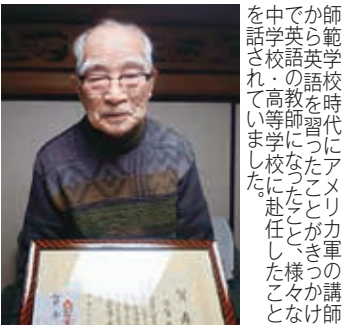 師範学校時代にアメリカ軍の講師
から英語を習ったことがきっかけ
で英語の教師になったこと、様々な
中学校・高等学校に赴任したこと
を話されていました。
賀寿